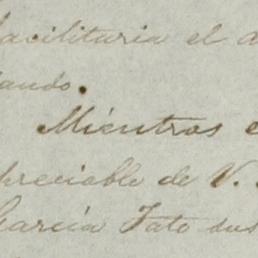 facilitaria el a
ando.
Mientras e
preciable de V.
García Tato sus